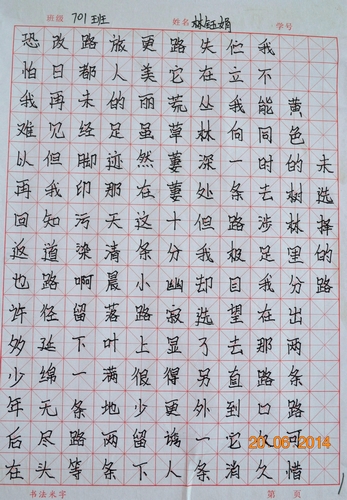 班级 701班 姓名 林钰娟 学号
未选择的路
黄色的树林里分出两条路可惜
我不能同时去涉足我在那路口久久
伫立我向一条路极目望去直到它消
失在丛林深处但我却选了另外一条
路它荒草萋萋十分幽寂显得更诱人
更美丽虽然在这条小路上很少留下
旅人的足迹那天清晨落叶满地两条
路都未经脚印污染啊留下一条路等
改日再见但我知道路径延绵无尽头
恐怕我难以再回返也许多少年后在
书法米字 第 页
20.06.2014